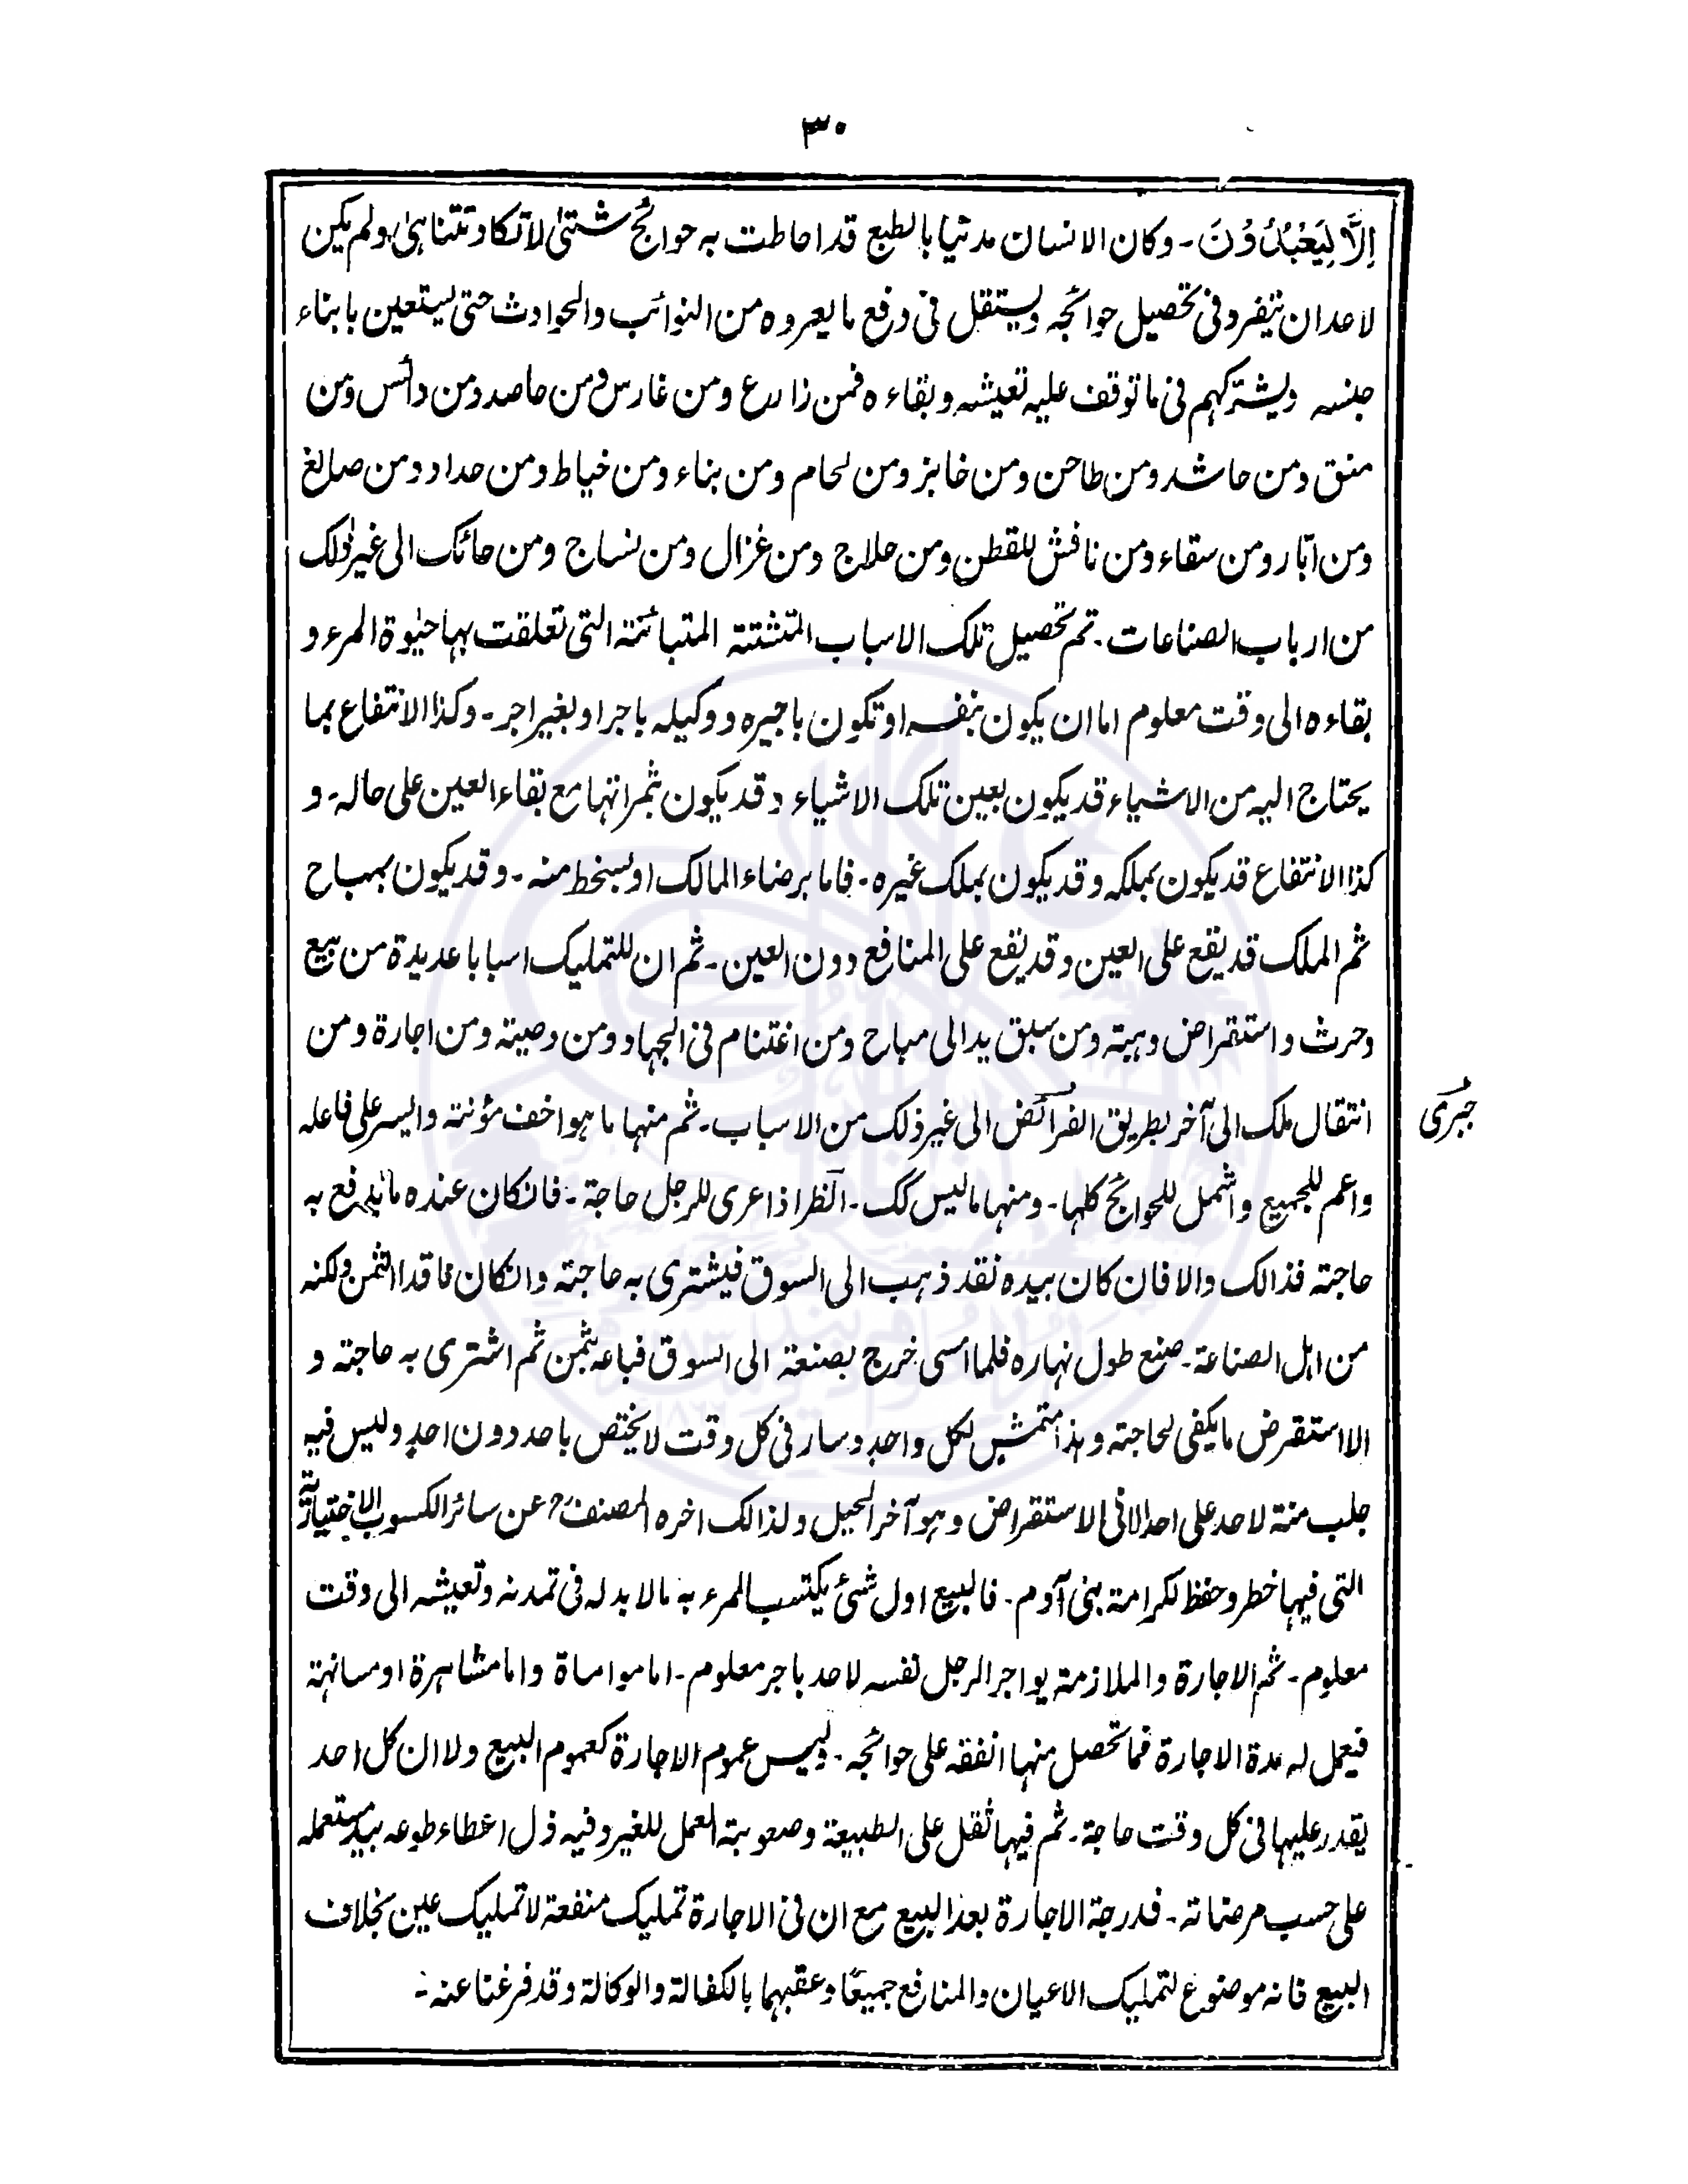 ٣٠
اِلَّا لِيَعْبُدُوْنَ - وكان الانسان مدنيا بالطبع قد احاطت به حوائج شتىٰ لا تكاد تتناهىٰ ولم يكن
لاحد ان يتفرد فى تحصيل حوائجه ويستقل فى دفع ما يعروه من النوائب والحوادث حتى يستعين بابناء
جنسه ويشتركهم فى ما توقف عليه تعيشه وبقاءه فمن زارع ومن غارس ومن حاصد ومن دائس ومن
منق ومن حاشد ومن طاحن ومن خابز ومن لحام ومن بناء ومن خياط ومن حداد ومن صائغ
ومن ابّار ومن سقاء ومن نافش للقطن ومن حلاج ومن غزال ومن نساج ومن حائك الى غير ذلك
من ارباب الصناعات - ثم تحصيل تلك الاسباب المتشتتة المتبائنة التى تعلقت بها حيٰوة المرء و
بقاءه الى وقت معلوم اما ان يكون بنفسه او تكون باجيره ووكيله باجر او بغير اجر - وكذا الانتفاع بما
يحتاج اليه من الاشياء قد يكون بعين تلك الاشياء وقد يكون بثمراتها مع بقاء العين على حاله - و
كذا الانتفاع قد يكون بملكه وقد يكون بملك غيره - فاما برضاء المالك او بسخط منه - وقد يكون بمباح
ثم الملك قد يقع على العين وقد يقع على المنافع دون العين - ثم ان للتمليك اسبابا عديدة من بيع
وحرث واستقراض وهبته ومن سبق يد الى مباح ومن اغتنام فى الجهاد ومن وصيته ومن اجارة ومن
انتقال ملك الى آخر بطريق الفرآئض الى غير ذلك من الاسباب - ثم منها ما هو اخف مؤنته وايسر على فاعله
جبرى
واعم للجميع واشمل للحوائج كلها - ومنها ما ليس كك - انظر اذا عرى للرجل حاجة - فانكان عنده ما يدفع به
حاجته فذالك والا فان كان بيده نقد ذهب الى السوق فيشترى به حاجته وانكان فاقد الثمن ولكنه
من اهل الصناعة - صنع طول نهاره فلما امسى خرج بصنعة الى السوق فباعه بثمن ثم اشترى به حاجته و
الا استقرض ما يكفى لحاجته وهذا متمش لكل واحد وسار فى كل وقت لا يختص باحد دون احد وليس فيه
جلب منة لاحد على احد الا فى الاستقراض وهو آخر الحيل ولذالك اخره المصنفؒ عن سائر الكسوب الاختيارية
التى فيها خطر وحفظ لكرامة بنى آدم - فالبيع اول شئ يكتسب المرء به ما لا بد له فى تمدنه وتعيشه الى وقت
معلوم - ثم الاجارة والملازمة يواجر الرجل نفسه لاحد باجر معلوم - اما مواساة واما مشاهرة او مسانهة
فيعمل له مدة الاجارة فما تحصل منها انفقه على حوائجه - وليس عموم الاجارة كعموم البيع ولا ان كل احد
يقدر عليها فى كل وقت حاجة - ثم فيها ثقل على الطبيعة وصعوبته العمل للغير وفيه ذل اعطاء طوعه بيد مستعمله
على حسب مرضاته - فدرجة الاجارة بعد البيع مع ان فى الاجارة تمليك منفعة لا تمليك عين بخلاف
البيع فانه موضوع لتمليك الاعيان والمنافع جميعًا وعقبهما بالكفالة والوكالة وقد فرغنا عنه -